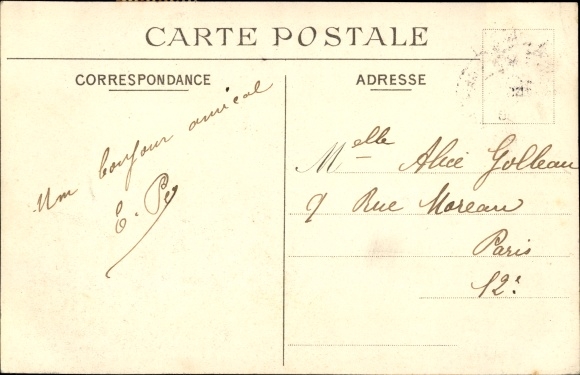 CARTE POSTALE
CORRESPONDANCE
Un bonjour amical
E. Pey
ADRESSE
Melle Alice Golleau
9 Rue Moreau
Paris
12e